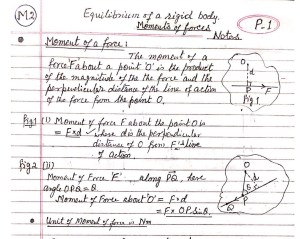 M2
Equilibrium of a rigid body.
Moments of forces
Notes
P-1
• Moment of a force:
The moment of a
force F about a point 'O' is the product
of the magnitude of the the force and the
perpendicular distance of the line of action
of the force from the point O.
O
d
P
F
Fig 1
Fig 1 (i) Moment of force F about the point O is
= F×d where d is the perpendicular
distance of O from F's line
of action.
Fig 2 (ii)
Moment of Force 'F' along PQ, here
angle OPQ = θ.
Moment of Force about 'O' = F×d
= F× OP Sinθ.
• Unit of Moment of force is Nm
O
d
θ
P
Q